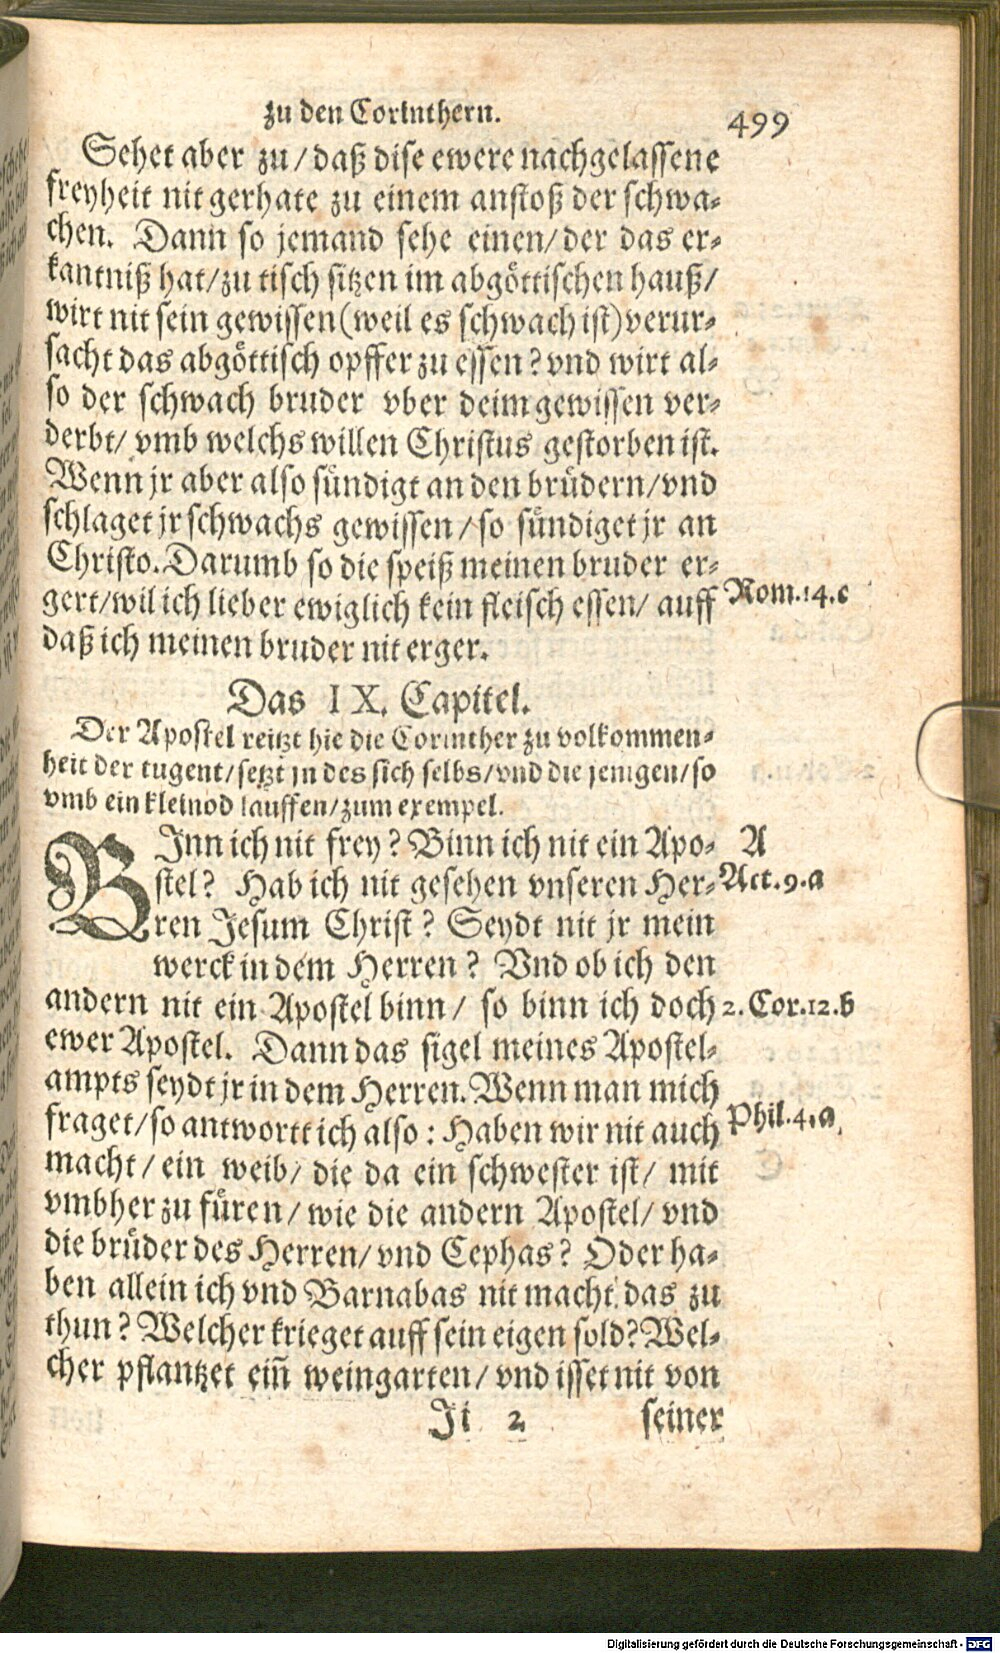 zu den Corinthern.
499
Sehet aber zu/ daß dise ewere nachgelassene
freyheit nit gerhate zu einem anstoß der schwa-
chen. Dann so jemand sehe einen/ der das er-
kantniß hat/ zu tisch sitzen im abgöttischen hauß/
wirt nit sein gewissen (weil es schwach ist) verur-
sacht das abgöttisch opffer zu essen? vnd wirt al-
so der schwach bruder vber deim gewissen ver-
derbt/ vmb welchs willen Christus gestorben ist.
Wenn jr aber also sündigt an den brüdern/ vnd
schlaget jr schwachs gewissen/ so sündiget jr an
Christo. Darumb so die speiß meinen bruder er-
gert/ wil ich lieber ewiglich kein fleisch essen/ auff
Rom.14.c
daß ich meinen bruder nit erger.
Das IX. Capitel.
Der Apostel reitzt hie die Corinther zu volkommen-
heit der tugent/ setzt jn des sich selbs/ vnd die jenigen/ so
vmb ein kleinod lauffen/ zum exempel.
BInn ich nit frey? Binn ich nit ein Apo-
A
stel? Hab ich nit gesehen vnseren Her-
Act.9.a
ren Jesum Christ? Seydt nit jr mein
werck in dem Herren? Vnd ob ich den
andern nit ein Apostel binn/ so binn ich doch
2.Cor.12.b
ewer Apostel. Dann das sigel meines Apostel-
ampts seydt jr in dem Herren. Wenn man mich
fraget/ so antwortt ich also: Haben wir nit auch
Phil.4.a
macht/ ein weib/ die da ein schwester ist/ mit
vmbher zu füren/ wie die andern Apostel/ vnd
die brüder des Herren/ vnd Cephas? Oder ha-
ben allein ich vnd Barnabas nit macht das zu
thun? Welcher krieget auff sein eigen sold? Wel-
cher pflantzet ein̄ weingarten/ vnd isset nit von
Ji 2
seiner
Digitalisierung gefördert durch die Deutsche Forschungsgemeinschaft - DFG